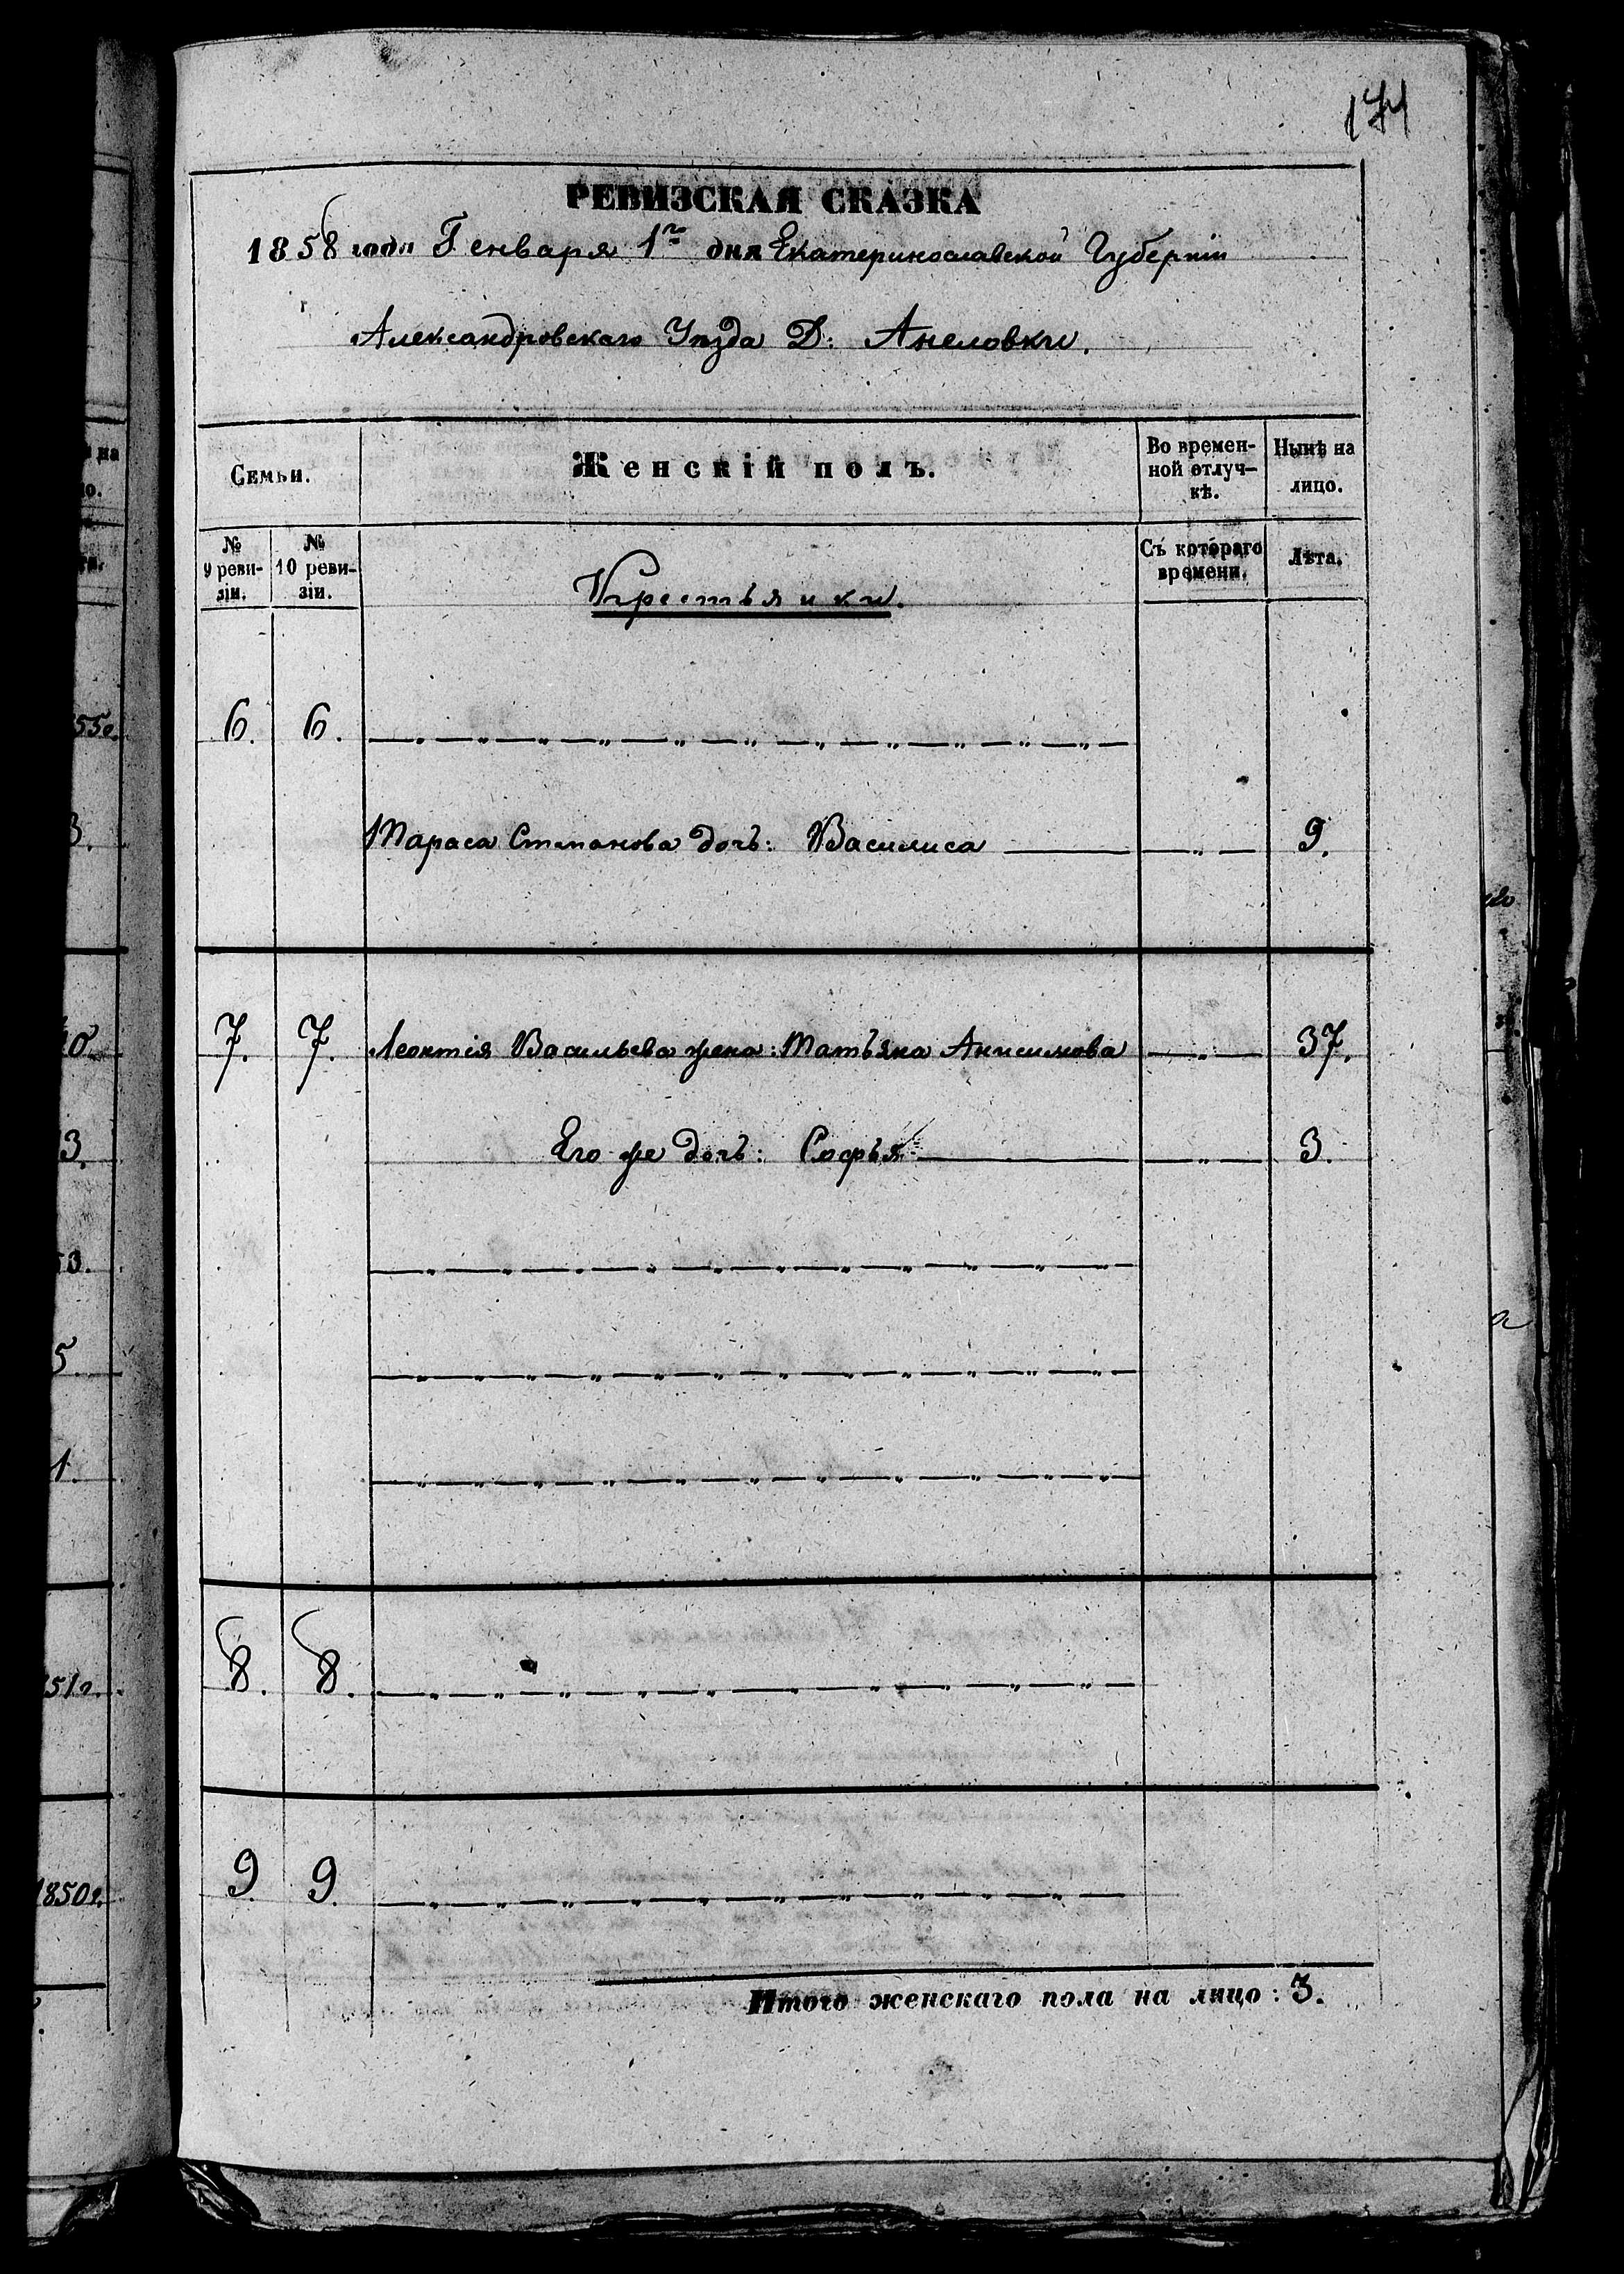 174
РЕВИЗСКАЯ СКАЗКА
1858 года Генваря 1го дня Екатеринославской Губерніи
Александровскаго Уѣзда Д: Анеловки.
Семьи.
Женскій полъ.
Во времен-
ной отлуч-
кѣ.
Нынѣ на
лицо.
№
9 реви-
зіи.
№
10 реви-
зіи.
Крестьянки.
Съ котораго
времени.
Лѣта.
6. 6. — „ — „ — „ — „ — „ — „ — „ — „ — „ — „ —
Тараса Степанова дочь: Василиса — — „ — 9.
7. 7. Леонтія Васильева жена: Татьяна Анисимова — „ — 37.
Его же дочь: Софья — — „ — 3.
— „ — „ — „ — „ — „ — „ — „ — „ — „ — „ — „ —
— „ — „ — „ — „ — „ — „ — „ — „ — „ — „ — „ —
— „ — „ — „ — „ — „ — „ — „ — „ — „ — „ — „ —
8. 8. — „ — „ — „ — „ — „ — „ — „ — „ — „ — „ —
9. 9. — „ — „ — „ — „ — „ — „ — „ — „ — „ — „ —
Итого женскаго пола на лицо: 3.